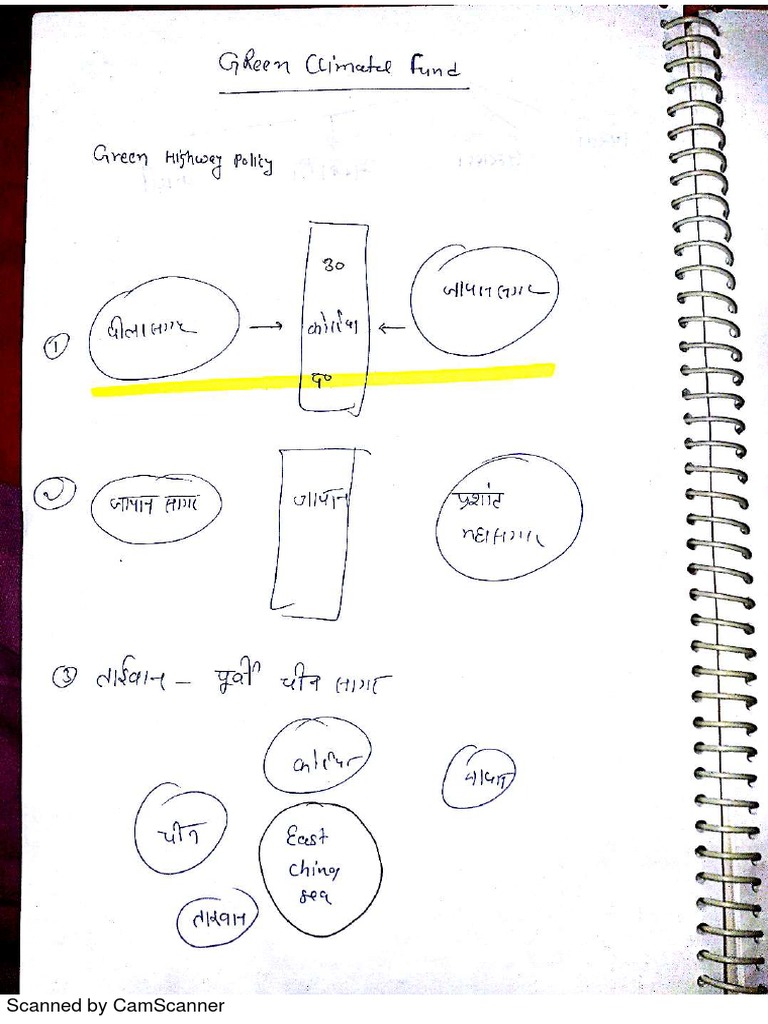 Green Climate Fund
Green Highway Policy
①
पीला सागर
उ०
कोरिया
द०
जापान सागर
②
जापान सागर
जापान
प्रशांत
महासागर
③ ताईवान - पूर्वी चीन सागर
कोरिया
जापान
चीन
East
China
sea
ताइवान
Scanned by CamScanner